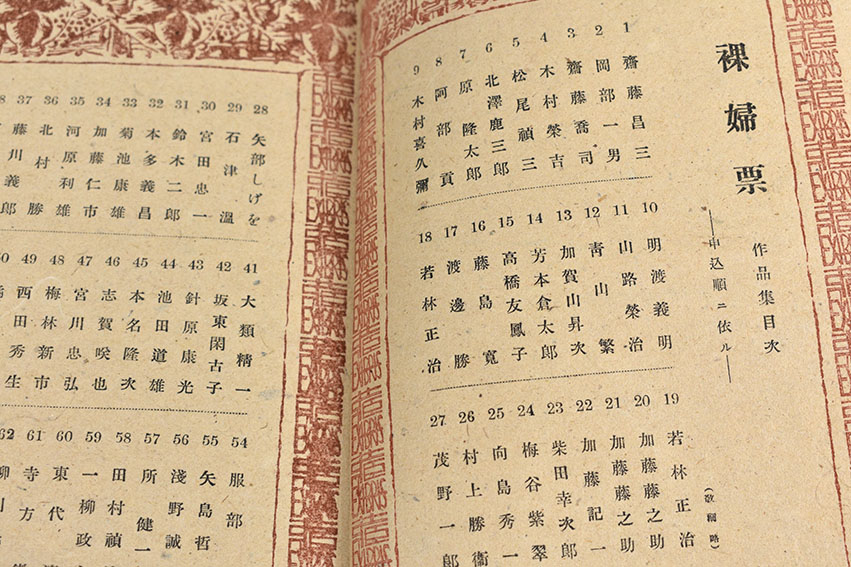 裸婦票
作品集目次
―申込順ニ依ル―
(敬稱略)
1 齋藤昌三
2 岡部一男
3 齋藤喬司
4 木村榮吉
5 松尾禎三
6 北澤鹿三郎
7 原隆太郎
8 阿部貢
9 木村喜久彌
10 明渡義明
11 山路榮治
12 靑山繁
13 加賀山昇次
14 芳本倉太郎
15 高橋友鳳子
16 藤島寬
17 渡邊勝
18 若林正治
19 若林正治
20 加藤藤之助
21 加藤藤之助
22 加藤記一
23 柴田幸次郎
24 梅谷紫翠
25 向島秀一
26 村上勝衞
27 茂野一郎
28 矢部しげを
29 石津溫
30 宮田忠一
31 鈴木二郎
32 本多義昌
33 菊池康雄
34 加藤仁市
35 河原利雄
36 北村勝
37 藤川義郎
41 大類精一
42 坂東閑古子
43 針原康光
44 池田道雄
45 本名隆次
46 志賀咲也
47 宮川忠弘
48 梅林新市
49 西田秀生
54 服部
55 矢島哲
56 淺野誠
57 所健一
58 田村禎
59 一柳政
60 東代
61 寺方
62 柳
EXLIBRIS